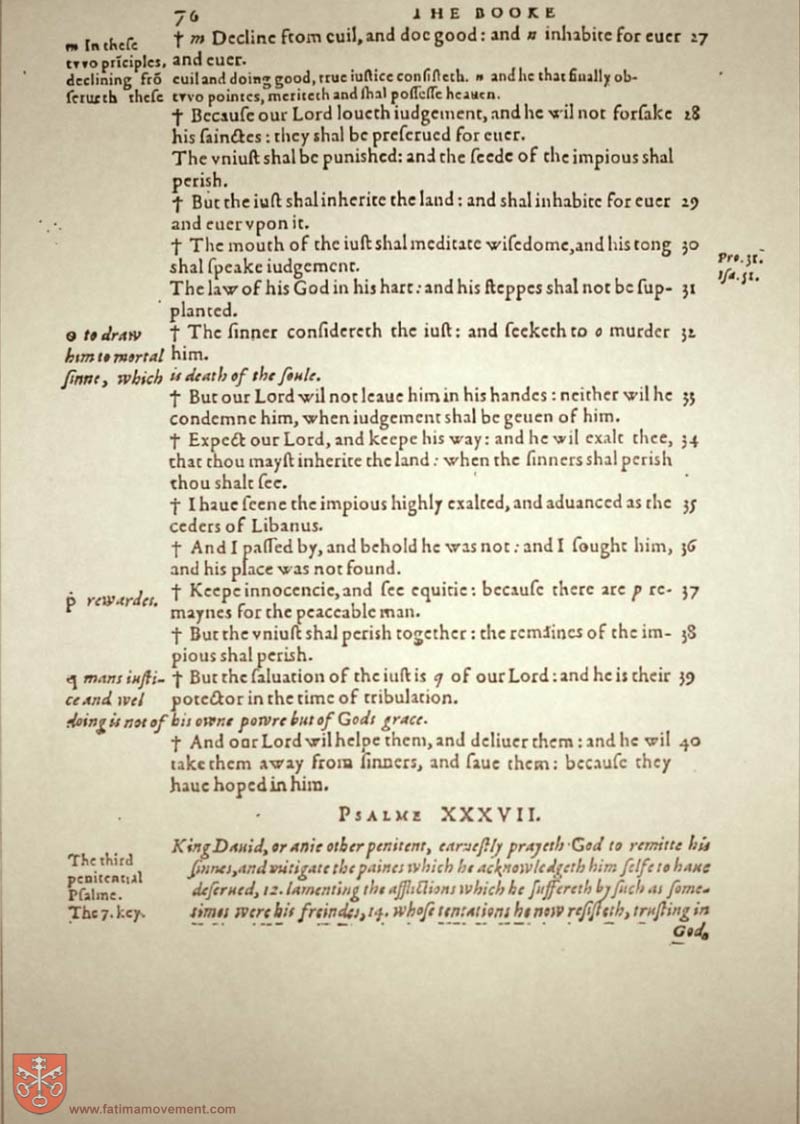 76 THE BOOKE
† m Decline from euil, and doe good: and n inhabite for euer 27
and euer.
m In theſe
tvvo prīciples,
declining frō euil and doing good, true iuſtice conſiſteth. n and he that finally ob-
ſerueth theſe tvvo pointes, meriteth and ſhal poſſeſſe heauen.
† Becauſe our Lord loueth iudgement, and he wil not forſake 28
his ſainctes: they ſhal be preſerued for euer.
The vniuſt ſhal be punished: and the ſeede of the impious ſhal
perish.
† But the iuſt ſhal inherite the land: and ſhal inhabite for euer 29
and euer vpon it.
† The mouth of the iuſt ſhal meditate wiſedome, and his tong 30
ſhal ſpeake iudgement.
Pro. 31.
Iſa. 51.
The law of his God in his hart: and his ſteppes ſhal not be ſup- 31
planted.
† The ſinner conſidereth the iuſt: and ſeeketh to o murder 32
him.
o to draw
him to mortal
ſinne, which is death of the ſoule.
† But our Lord wil not leaue him in his handes: neither wil he 33
condemne him, when iudgement ſhal be geuen of him.
† Expect our Lord, and keepe his way: and he wil exalt thee, 34
that thou mayſt inherite the land: when the ſinners ſhal perish
thou ſhalt ſee.
† I haue ſeene the impious highly exalted, and aduanced as the 35
ceders of Libanus.
† And I paſſed by, and behold he was not: and I ſought him, 36
and his place was not found.
† Keepe innocencie, and ſee equitie: becauſe there are p re- 37
maynes for the peaceable man.
p rewardes.
† But the vniuſt ſhal perish together: the remaines of the im- 38
pious ſhal perish.
† But the ſaluation of the iuſt is q of our Lord: and he is their 39
potector in the time of tribulation.
q mans iuſti-
ce and wel
doing is not of his owne powre but of Gods grace.
† And our Lord wil helpe them, and deliuer them: and he wil 40
take them away from ſinners, and ſaue them: becauſe they
haue hoped in him.
PSALME XXXVII.
The third
penitential
Pſalme.
The 7. key.
King Dauid, or anie other penitent, earneſtly prayeth God to remitte his
ſinnes, and mitigate the paines which he acknowledgeth him ſelfe to haue
deſerued, 12. lamenting the afflictions which he ſuffereth by ſuch as ſome-
times were his freindes, 14. whoſe tentations he now reſiſteth, truſting in
God,
www.fatimamovement.com